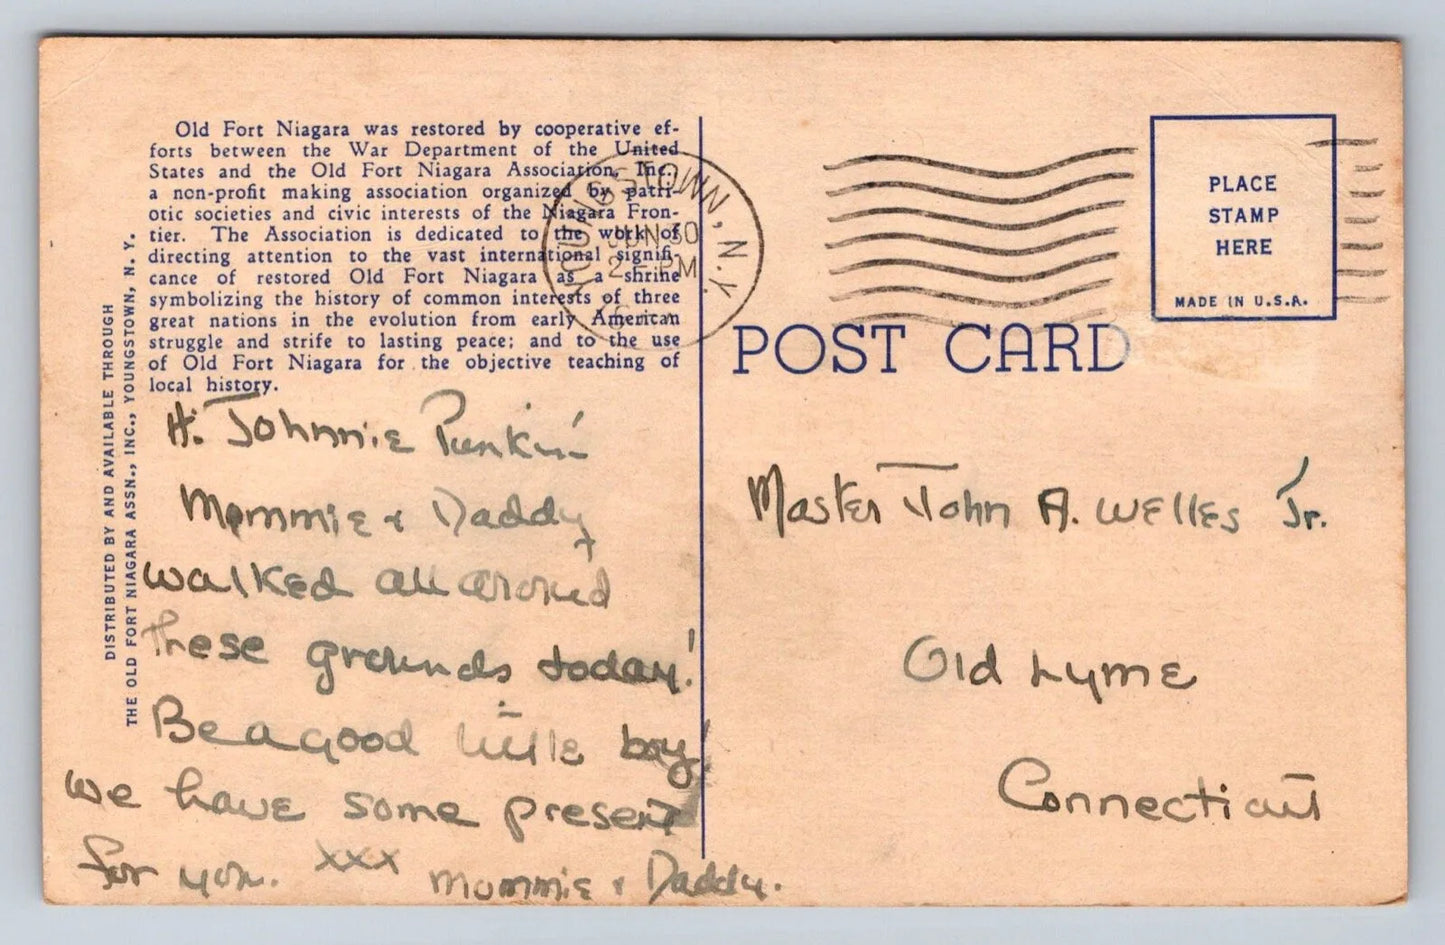 Old Fort Niagara was restored by cooperative ef-
forts between the War Department of the United
States and the Old Fort Niagara Association, Inc.,
a non-profit making association organized by patri-
otic societies and civic interests of the Niagara Fron-
tier. The Association is dedicated to the work of
directing attention to the vast international signifi-
cance of restored Old Fort Niagara as a shrine
symbolizing the history of common interests of three
great nations in the evolution from early American
struggle and strife to lasting peace; and to the use
of Old Fort Niagara for the objective teaching of
local history.
DISTRIBUTED BY AND AVAILABLE THROUGH
THE OLD FORT NIAGARA ASSN., INC., YOUNGSTOWN, N. Y.
Hi Johnnie Punkin'
Mommie & Daddy
walked all around
these grounds today!
Be a good little boy!
we have some present
for you. xxx Mommie & Daddy.
YOUNGSTOWN, N.Y.
JUN 30
2 PM
POST CARD
PLACE
STAMP
HERE
MADE IN U.S.A.
Master John A. Welles Jr.
Old Lyme
Connecticut